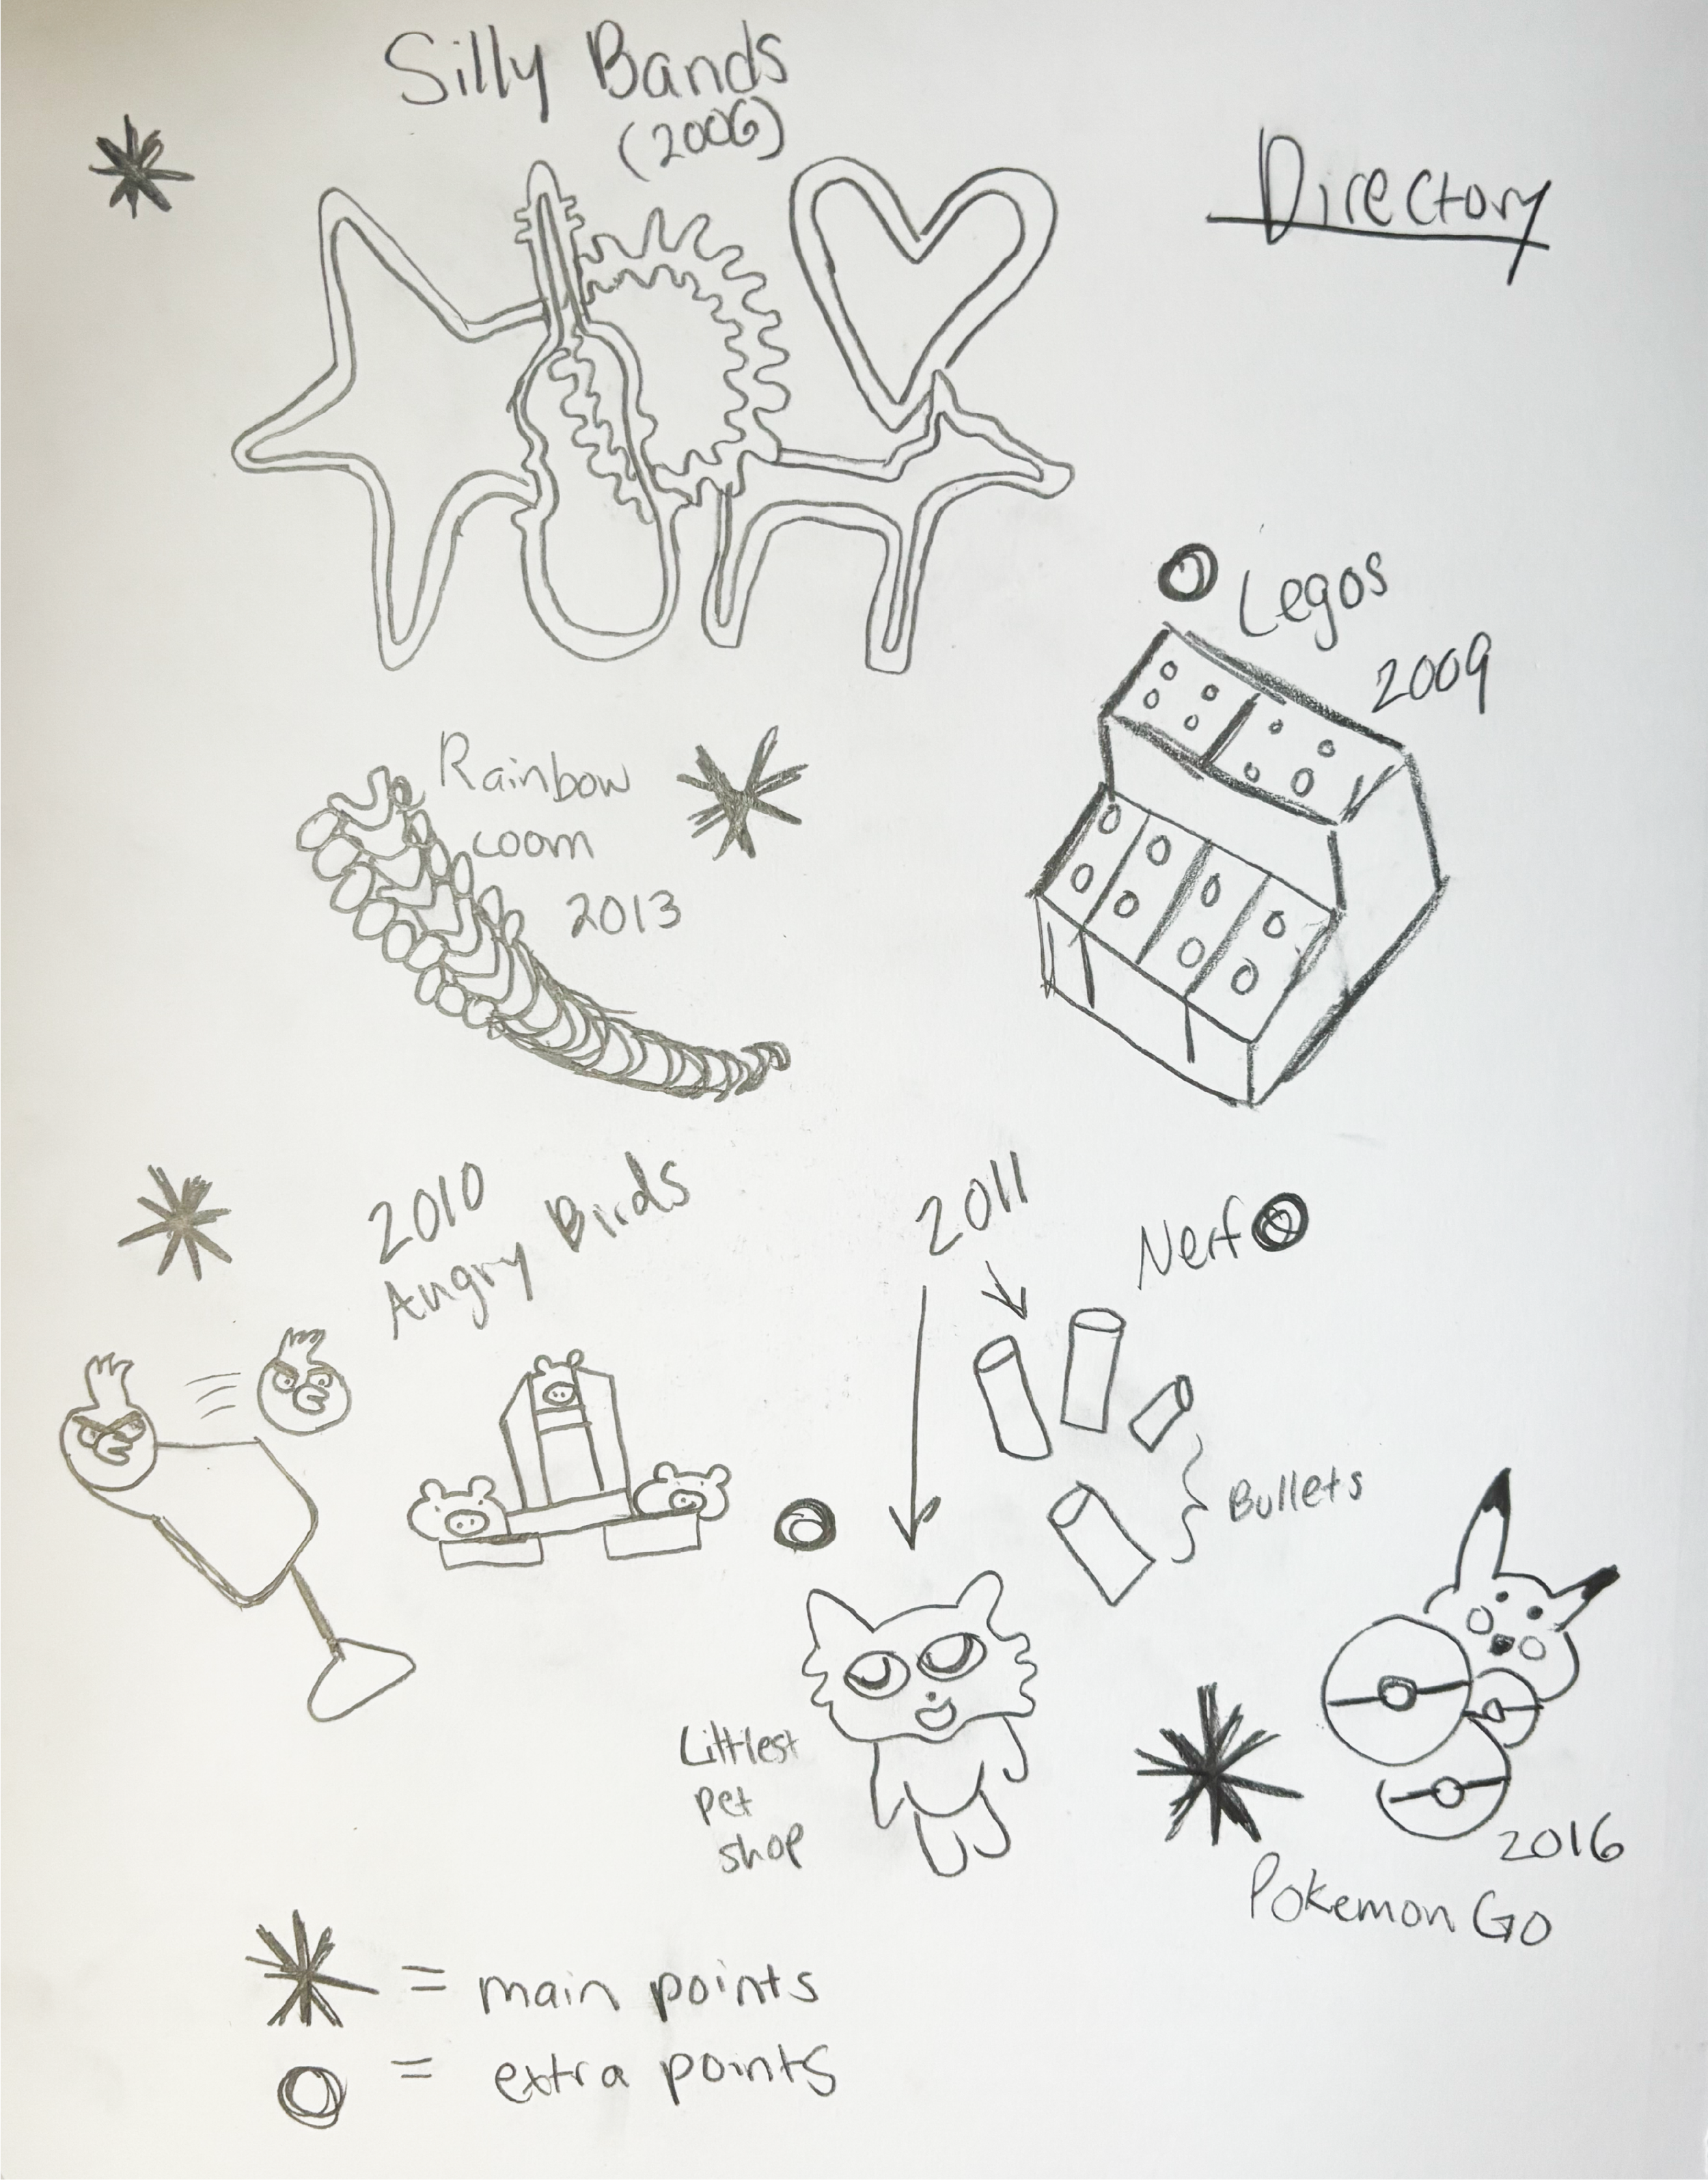 Silly Bands
(2006)
Directory
Legos
2009
Rainbow
Loom
2013
2010
Angry Birds
2011
Nerf
Bullets
Littlest
pet
shop
2016
Pokemon Go
= main points
= extra points